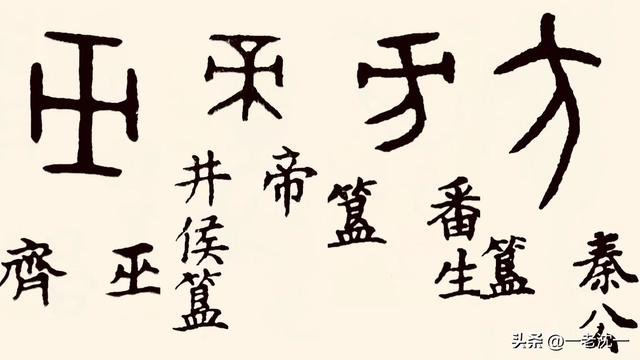 齊
巫
井侯簋
帝
簋
番生簋
秦公
头条 @一老沈一